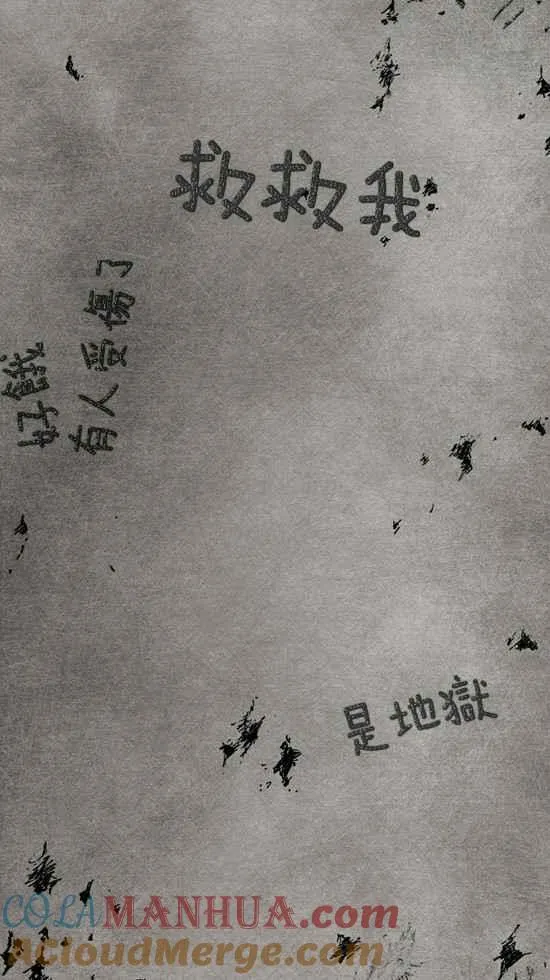 救救我
有人受傷了
好餓
是地獄
COLAMANHUA.com
ACloudMerge.com